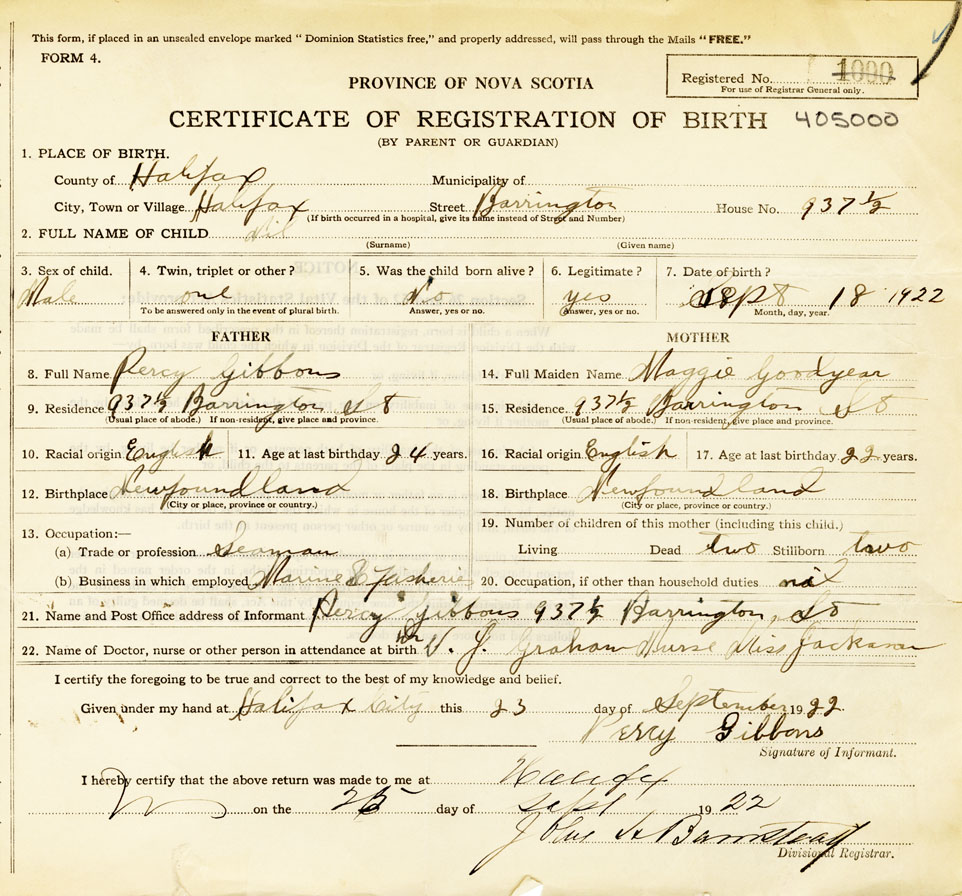 This form, if placed in an unsealed envelope marked "Dominion Statistics free," and properly addressed, will pass through the Mails "FREE."
FORM 4.
PROVINCE OF NOVA SCOTIA
Registered No. 1000
For use of Registrar General only.
CERTIFICATE OF REGISTRATION OF BIRTH 405000
(BY PARENT OR GUARDIAN)
1. PLACE OF BIRTH.
County of Halifax Municipality of
City, Town or Village Halifax Street Barrington House No. 937½
(If birth occurred in a hospital, give its name instead of Street and Number)
2. FULL NAME OF CHILD Nil
(Surname) (Given name)
3. Sex of child. 4. Twin, triplet or other? 5. Was the child born alive? 6. Legitimate? 7. Date of birth?
Male one No yes Sept 18 1922
To be answered only in the event of plural birth. Answer, yes or no. Answer, yes or no. Month, day, year.
FATHER MOTHER
8. Full Name Percy Gibbons 14. Full Maiden Name Maggie Goodyear
9. Residence 937½ Barrington St 15. Residence 937½ Barrington St
(Usual place of abode.) If non-resident, give place and province. (Usual place of abode.) If non-resident, give place and province.
10. Racial origin English 11. Age at last birthday 24 years. 16. Racial origin English 17. Age at last birthday 22 years.
12. Birthplace Newfoundland 18. Birthplace Newfoundland
(City or place, province or country.) (City or place, province or country.)
19. Number of children of this mother (including this child.)
13. Occupation:—
(a) Trade or profession Seaman Living Dead two Stillborn two
(b) Business in which employed Marine & Fisheries 20. Occupation, if other than household duties nil
21. Name and Post Office address of Informant Percy Gibbons 937½ Barrington St
22. Name of Doctor, nurse or other person in attendance at birth Dr V. J. Graham Nurse Miss Jackson
I certify the foregoing to be true and correct to the best of my knowledge and belief.
Given under my hand at Halifax City this 23 day of September 1922.
Percy Gibbons
Signature of Informant.
I hereby certify that the above return was made to me at Halifax
on the 25 day of Sept 1922
Divisional Registrar.